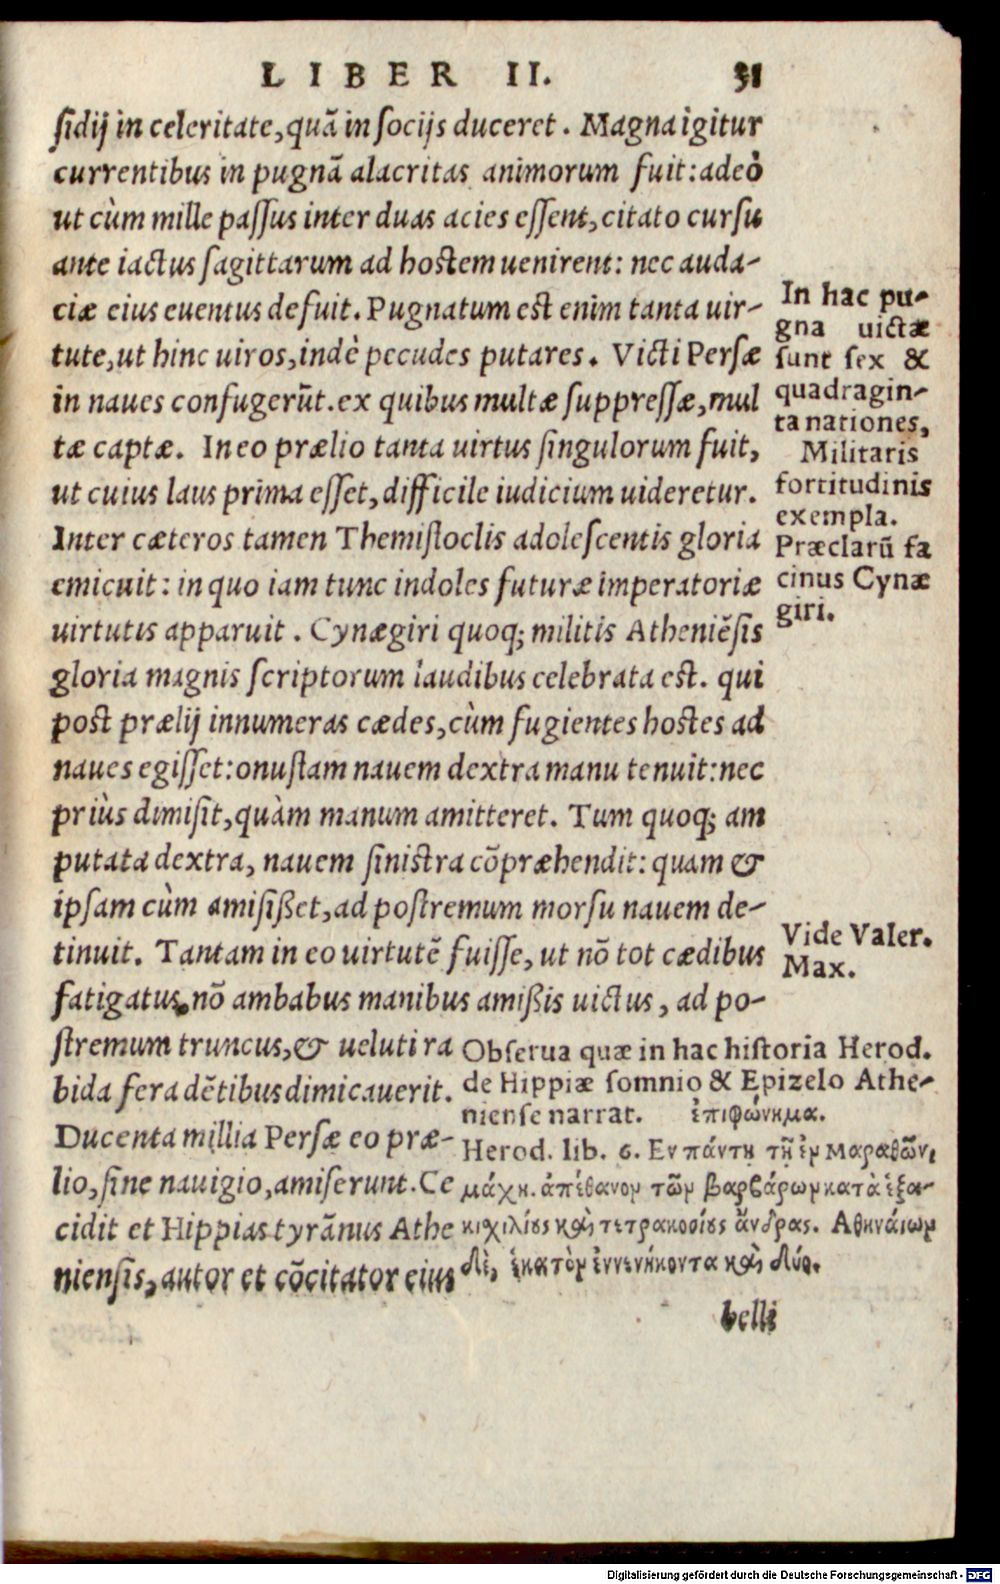 LIBER II. 31
sidij in celeritate, quã in socijs duceret. Magna igitur
currentibus in pugnã alacritas animorum fuit: adeò
ut cùm mille passus inter duas acies essent, citato cursu
ante iactus sagittarum ad hostem uenirent: nec auda-
ciæ eius euentus defuit. Pugnatum est enim tanta uir-
tute, ut hinc uiros, indè pecudes putares. Victi Persæ
in naues confugerũt. ex quibus multæ suppressæ, mul
tæ captæ. In eo prælio tanta uirtus singulorum fuit,
ut cuius laus prima esset, difficile iudicium uideretur.
Inter cæteros tamen Themistoclis adolescentis gloria
emicuit: in quo iam tunc indoles futuræ imperatoriæ
uirtutis apparuit. Cynægiri quoq; militis Atheniẽsis
gloria magnis scriptorum laudibus celebrata est. qui
post prælij innumeras cædes, cùm fugientes hostes ad
naues egisset: onustam nauem dextra manu tenuit: nec
priùs dimisit, quàm manum amitteret. Tum quoq; am
putata dextra, nauem sinistra cõpræhendit: quam &
ipsam cùm amisißet, ad postremum morsu nauem de-
tinuit. Tantam in eo uirtutẽ fuisse, ut nõ tot cædibus
fatigatus, nõ ambabus manibus amißis uictus, ad po-
stremum truncus, & ueluti ra
bida fera dẽtibus dimicauerit.
Ducenta millia Persæ eo præ-
lio, sine nauigio, amiserunt. Ce
cidit et Hippias tyrãnus Athe
niensis, autor et cõcitator eius
belli
In hac pu-
gna uictæ
sunt sex &
quadragin-
ta nationes,
Militaris
fortitudinis
exempla.
Præclarũ fa
cinus Cynæ
giri.
Vide Valer.
Max.
Obserua quæ in hac historia Herod.
de Hippiæ somnio & Epizelo Athe-
niense narrat. ἐπιφώνημα.
Herod. lib. 6. Εν πάντῃ τῇ ἐν μαραθῶνι
μάχῃ. ἀπέθανον τῶν βαρβάρων κατὰ ἑξα-
κιχιλίους καὶ τετρακοσίους ἄνδρας. Αθηναίων
δὲ, ἑκατὸν ἐννενήκοντα καὶ δύο.
Digitalisierung gefördert durch die Deutsche Forschungsgemeinschaft - DFG